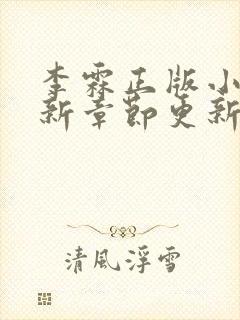 李霖正版小
新章節更新
清風浮雪